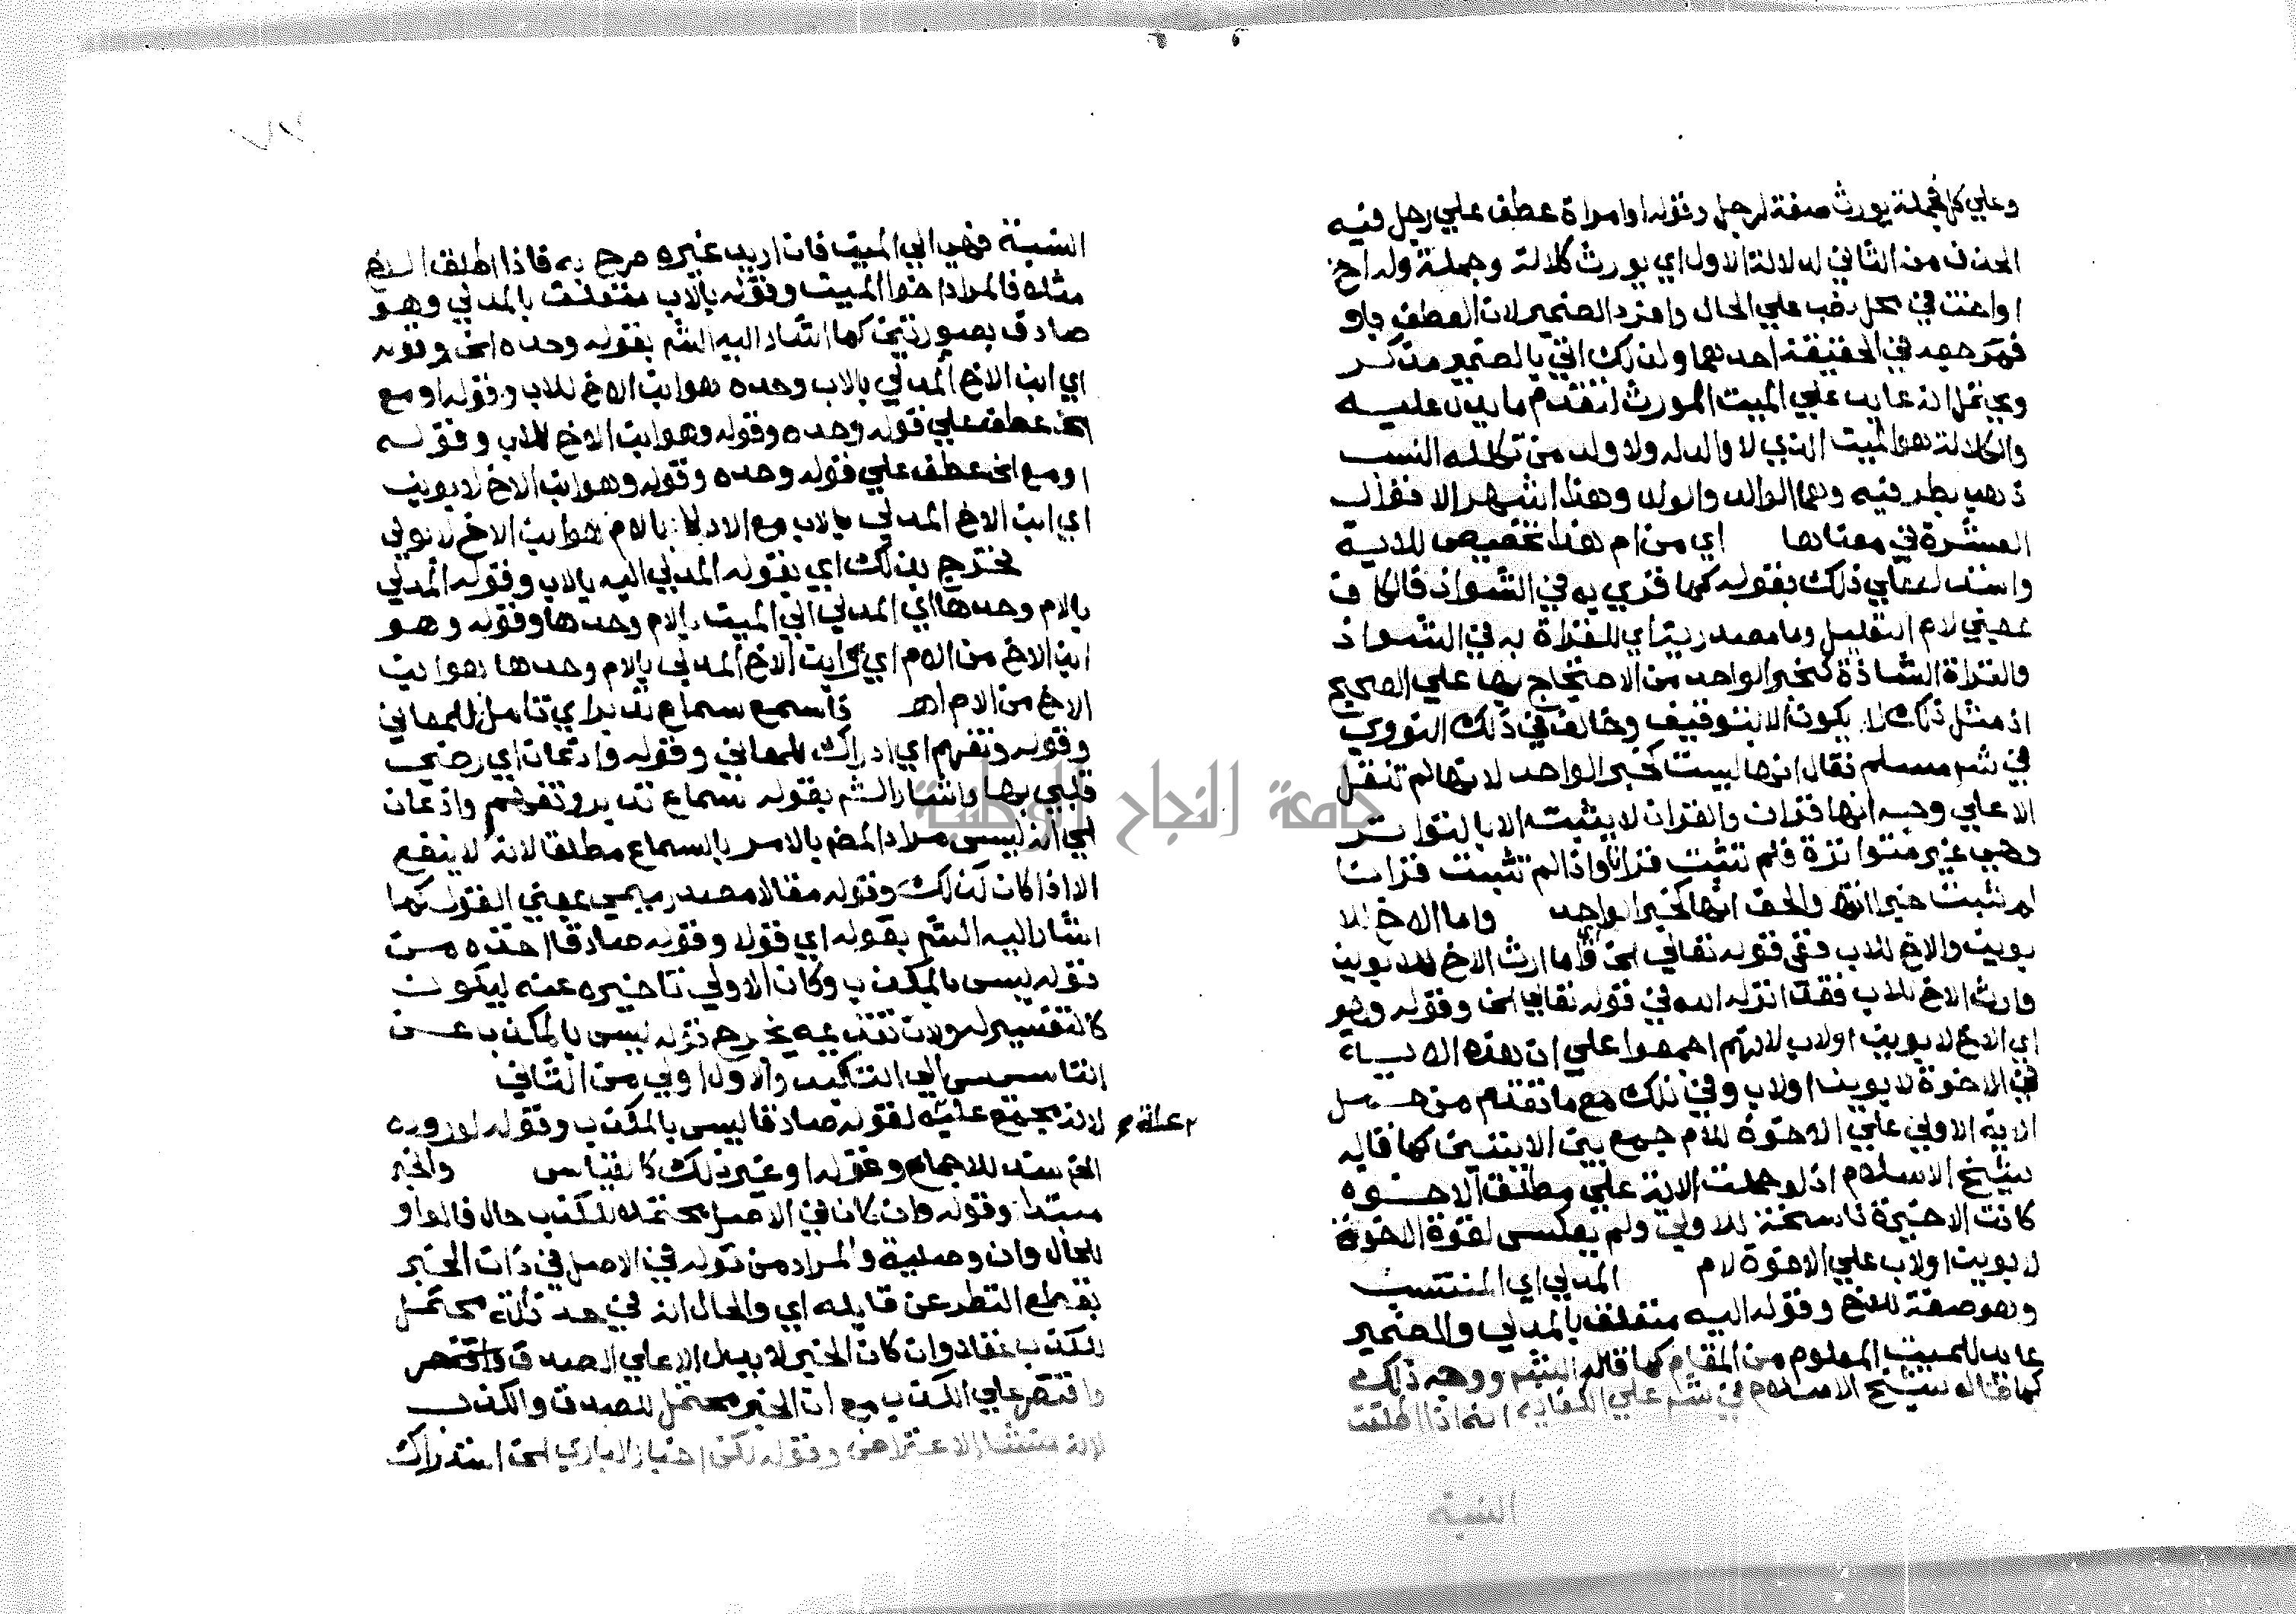 وعلي كل فجملة يورث صفة لرجل وقوله او امراة عطف علي رجل فيه
الحذف من الثاني لدلالة الاول اي يورث كلالة وجملة وله اخ
او اخت في محل نصب علي الحال وافرد الضمير لان العطف باو
فمرجعه في الحقيقة احدهما ولذلك اتي بالضمير مذكر
ويحتمل انه عايد علي الميت الموروث لتقدم ما يدل عليه
والكلالة هو الميت الذي لا والد له ولا ولد من تكلله النسب
ذهب بطرفيه وهما الوالد والولد وهذا اشهر الاقوال
العشرة في معناها اي من ام هذا تخصيص للاية
واستدل علي ذلك بقوله كما قري به في الشواذ فالكاف
بمعني لام التعليل وما مصدرية اي للقراة به في الشواذ
والقراة الشاذة كخبر الواحد من الاحتجاج بها علي الصحيح
اذ مثل ذلك لا يكون الا بتوقيف وخالف في ذلك النووي
في شم مسلم فقال انها ليست كخبر الواحد لانها لم تنقل
الا علي وجه انها قران والقران لا يثبت الا بالتواتر
وهي غير متواترة فلم تثبت قرانا واذا لم تثبت قرانا
لم تثبت خبرا انتهي والحق انها كخبر الواحد واما الاخ للا
بوين والاخ للاب ففي قوله تعالي الخ اي واما ارث الاخ للابوين
وارث الاخ للاب فقد انزله الله في قوله تعالي الخ وقوله وهو
اي الاخ لابوين او لاب لانهم اجمعوا علي ان هذه الاية
في الاخوة لابوين او لاب وفي ذلك مع ما تقدم من حمل
الاية الاولي علي الاخوة للام جمع بين الايتين كما قاله
شيخ الاسلام اذ لو حملت الاية علي مطلق الاخوة
كانت الاخيرة ناسخة للاولي ولم يعكس لقوة الاخوة
لابوين او لاب علي الاخوة لام المدلي اي المنتسب
وهو صفة للاخ وقوله اليه متعلق بالمدلي والضمير
عايد للميت المعلوم من المقام كما قاله الشم ووجه ذلك
كما قاله شيخ الاسلام في شم علي الكفاية انه اذا اطلقت
النسبة
النسبة فهي الي الميت فان اريد غيره صرح به فاذا اطلق الاخ
مثلا فالمراد اخوا الميت وقوله بالاب متعلق بالمدلي وهو
صادق بصورتين كما اشار اليه الشم بقوله وحده الخ وقوله
اي ابن الاخ المدلي بالاب وحده هو ابن الاخ للاب وقوله او مع
الخ عطف علي قوله وحده وقوله وهو ابن الاخ للاب وقوله
او مع الخ عطف علي قوله وحده وقوله وهو ابن الاخ لابوين
اي ابن الاخ المدلي بالاب مع الادلا بالام هو ابن الاخ لابوين
فخرج بذلك اي بقوله المدلي اليه بالاب وقوله المدلي
بالام وحدها اي المدلي الي الميت بالام وحدها وقوله وهو
ابن الاخ من الام اي وابن الاخ المدلي بالام وحدها هو ابن
الاخ من الام اهـ فاسمع سماع تدبر اي تامل للمعاني
وقوله وتفهم اي ادراك للمعاني وقوله واذعان اي رضي
قلبي بها واشار الشم بقوله سماع تدبر وتفهم واذعان
الي انه ليس مراد المصم بالامر بالسماع مطلقا لانه لا ينفع
الا اذا كان كذلك وقوله مقالا مصدر ميمي بمعني القول كما
اشار اليه الشم بقوله اي قولا وقوله صادقا اخذه من
قوله ليس بالمكذب وكان الاولي تاخيره عنه ليكون
كالتفسير له ولان تقديمه يخرج قوله ليس بالمكذب عن
التاسيس الي التاكيد والاول اولي من الثاني
لانه مجتمع عليه لقوله صادقا ليس بالمكذب وقوله لوروده
م علة م
الخ سند للاجماع وقوله او غير ذلك كالقياس والخبر
مبتدا وقوله وان كان في الاصل محتملا للكذب حال فالواو
للحال وان وصلية والمراد من قوله في الاصل في ذات الخبر
بقطع النظر عن قايله اي والحال انه في حد ذاته محتمل
للكذب عقلا وان كان الخبر لا يدل الا علي الصدق واقتصر
واقتصر علي الكذب مع ان الخبر محتمل للصدق والكذب
لانه منشا الاعتراض وقوله لكن اخبار الباري الخ استدراك